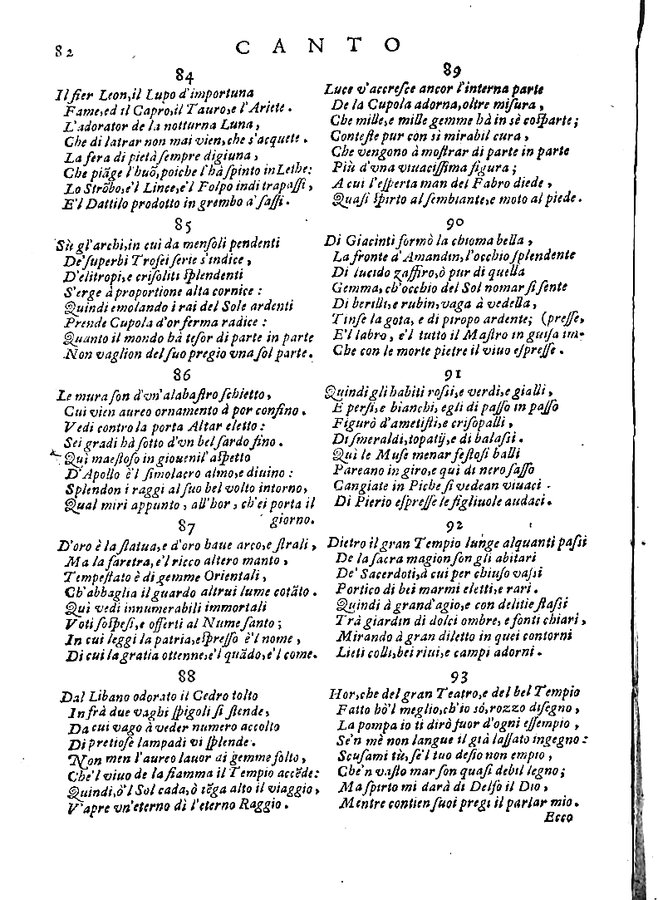 82 CANTO
84
Il fier Leon, il Lupo d'importuna
Fame, ed il Capro, il Tauro, e l'Ariete.
L'adorator de la notturna Luna,
Che di latrar non mai vien, che s'acquete.
La fera di pietà sempre digiuna,
Che piāge l'huō, poiche l'hà spinto in Lethe:
Lo Strōbo, e'l Lince, e'l Folpo indi trapassi,
E'l Dattilo prodotto in grembo a' sassi.
85
Sù gl'archi, in cui da mensoli pendenti
De' superbi Trofei serie s'indice,
D'elitropi, e crisoliti splendenti
S'erge à proportione alta cornice:
Quindi emolando i rai del Sole ardenti
Prende Cupola d'or ferma radice:
Quanto il mondo hà tesor di parte in parte
Non vaglion del suo pregio vna sol parte.
86
Le mura son d'vn'alabastro schietto,
Cui vien aureo ornamento à por confino.
Vedi contro la porta Altar eletto:
Sei gradi hà sotto d'vn bel sardo fino.
Quì maestoso in giouenil'aspetto
D'Apollo è'l simolacro almo, e diuino:
Splendon i raggi al suo bel volto intorno,
Qual miri appunto, all'hor, ch'ei porta il
giorno.
87
D'oro è la statua, e d'oro haue arco, e strali,
Ma la faretra, e'l ricco altero manto,
Tempestato è di gemme Orientali,
Ch'abbaglia il guardo altrui lume cotāto.
Quì vedi innumerabili immortali
Voti sospesi, e offerti al Nume santo;
In cui leggi la patria, espresso è'l nome,
Di cui la gratia ottenne, e'l quādo, e'l come.
88
Dal Libano odorato il Cedro tolto
Infrà due vaghi spigoli si stende,
Da cui vago à veder numero accolto
Di pretiose lampadi vi splende.
Non men l'aureo lauor di gemme folto,
Che'l viuo de la fiamma il Tempio accēde:
Quindi, ò'l Sol cada, ò tēga alto il viaggio,
V'apre vn'eterno dì l'eterno Raggio.
89
Luce v'accresce ancor l'interna parte
De la Cupola adorna, oltre misura,
Che mille, e mille gemme hà in sè cosparte;
Conteste pur con sì mirabil cura,
Che vengono à mostrar di parte in parte
Più d'vna viuacissima figura;
A cui l'esperta man del Fabro diede,
Quasi spirto al sembiante, e moto al piede.
90
Di Giacinti formò la chioma bella,
La fronte d'Amandin, l'occhio splendente
Di lucido zaffiro, ò pur di quella
Gemma, ch'occhio del Sol nomar si sente
Di berilli, e rubin, vaga à vedella,
Tinse la gota, e di piropo ardente; (presse,
E'l labro, e'l tutto il Mastro in guisa im-
Che con le morte pietre il viuo espresse.
91
Quindi gli habiti rossi, e verdi, e gialli,
E persi, e bianchi, egli di passo in passo
Figurò d'ametisti, e crisopalli,
Di smeraldi, topatij, e di balassi.
Quì le Muse menar festosi balli
Pareano in giro, e quì di nero sasso
Cangiate in Piche si vedean viuaci
Di Pierio espresse le figliuole audaci.
92
Dietro il gran Tempio lunge alquanti passi
De la sacra magion son gli abitari
De' Sacerdoti, à cui per chiuso vassi
Portico di bei marmi eletti, e rari.
Quindi à grand'agio, e con delitie stassi
Trà giardin di dolci ombre, e fonti chiari,
Mirando à gran diletto in quei contorni
Lieti colli, bei riui, e campi adorni.
93
Hor, che del gran Teatro, e del bel Tempio
Fatto hò'l meglio, ch'io sò, rozzo disegno,
La pompa io ti dirò fuor d'ogni essempio,
Se'n mè non langue il già lassato ingegno:
Scusami tù, se'l tuo desio non empio,
Che'n vasto mar son quasi debil legno;
Ma spirto mi darà di Delfo il Dio,
Mentre contien suoi pregi il parlar mio.
Ecco